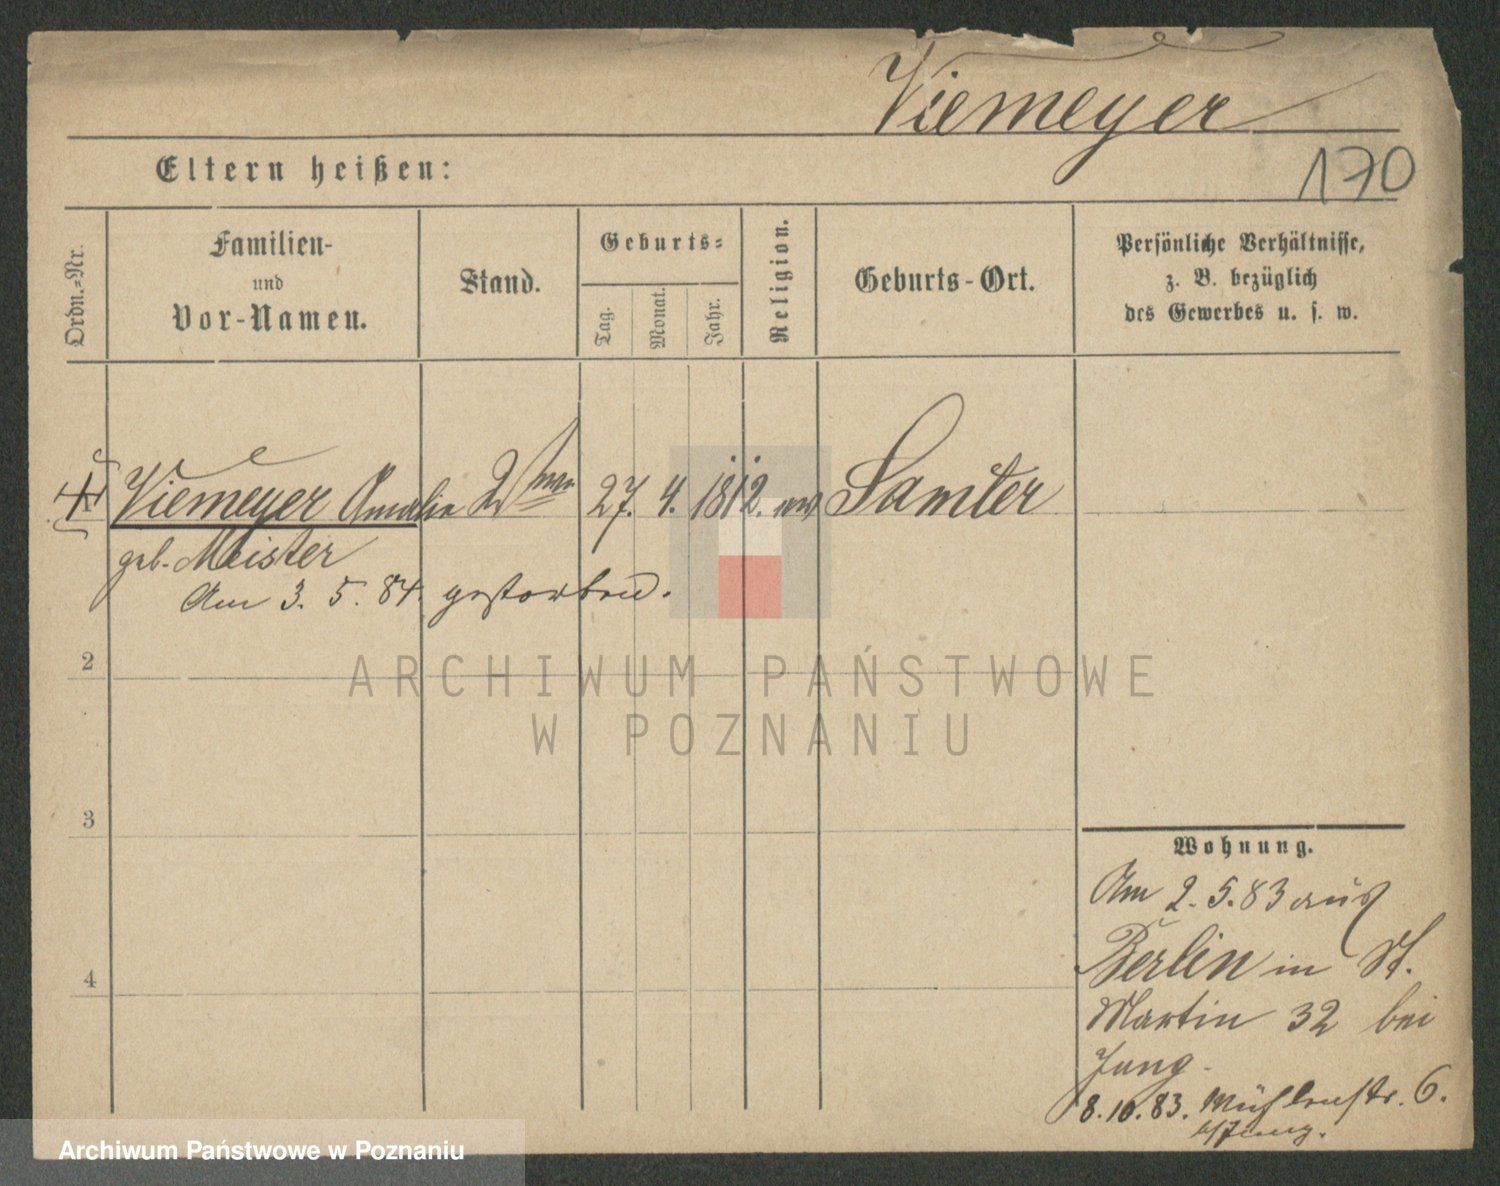 Viemeyer
170
Eltern heißen:
Ordn.-Nr.
Familien-
und
Vor-Namen.
Stand.
Geburts-
Tag.
Monat.
Jahr.
Religion.
Geburts-Ort.
Persönliche Verhältnisse,
z. B. bezüglich
des Gewerbes u. s. w.
Viemeyer Amalie 27. 4. 1812. Samter
geb. Meister
Am 3. 5. 84. gestorben.
2
3
4
Wohnung.
Am 2. 5. 83 aus
Berlin in St.
Martin 32 bei
Jung.
8. 10. 83. Mühlenstr. 6.
b/Jung.
ARCHIWUM PAŃSTWOWE
W POZNANIU
Archiwum Państwowe w Poznaniu